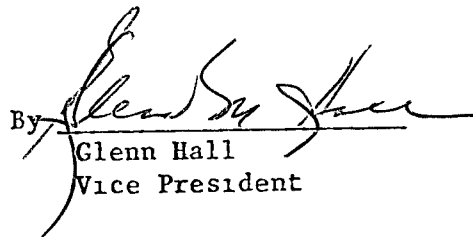 By Glenn Hall
Glenn Hall
Vice President